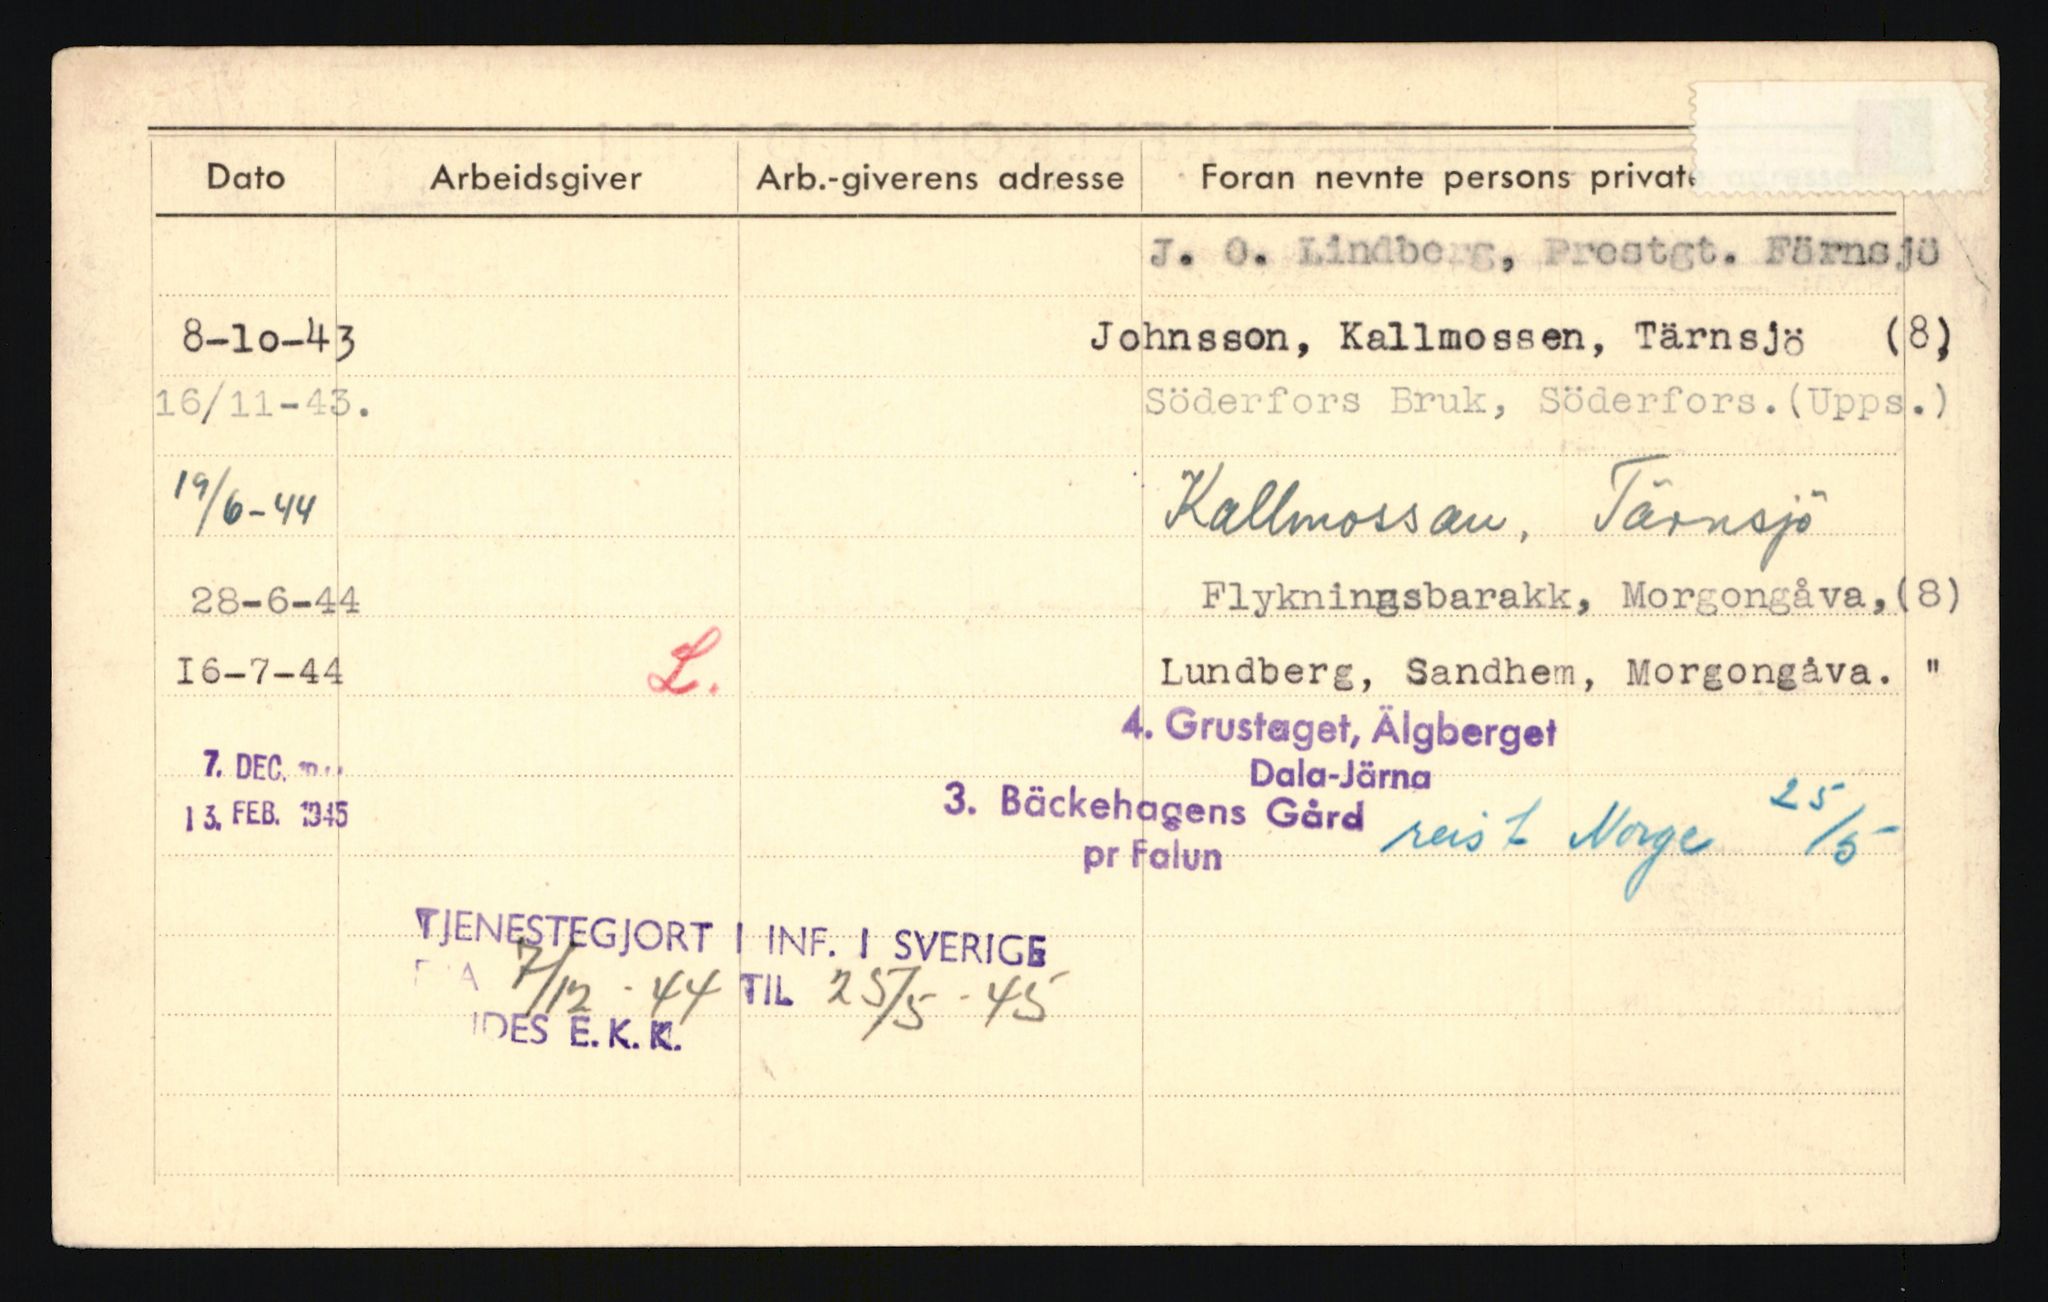 Dato Arbeidsgiver Arb.-giverens adresse Foran nevnte persons private adresse
J. O. Lindberg, Prestgt. Färnsjö
8-10-43 Johnsson, Kallmossen, Tärnsjö (8)
16/11-43. Söderfors Bruk, Söderfors.(Upps.)
19/6-44 Kallmossan, Tärnsjö
28-6-44 Flykningsbarakk, Morgongåva,(8)
I6-7-44 L. Lundberg, Sandhem, Morgongåva. "
4. Grustaget, Älgberget
7. DEC. Dala-Järna
13. FEB. 1945 3. Bäckehagens Gård reist Norge 25/5
pr Falun
TJENESTEGJORT I INF. I SVERIGE
7/12-44 TIL 25/5-45
E. K. K.